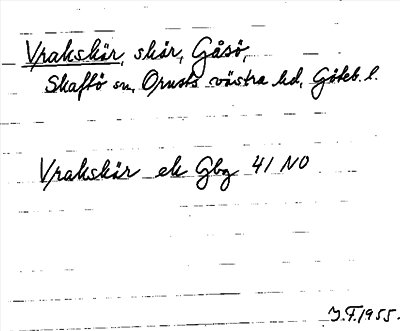 Vrakskär, skär, Gåsö,
Skaftö sn, Orusts västra hd, Göteb. l.
Vrakskär ek Gbg 41 NO
J.F. 1955.